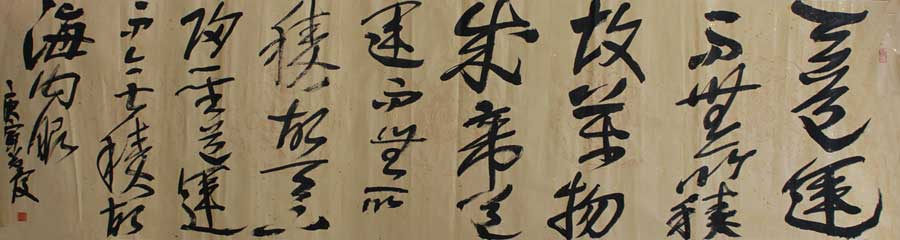 天道運
而無所積
故萬物
成帝道
運而無所
積故天下
歸聖道運
而無所積故
海內服
庚寅